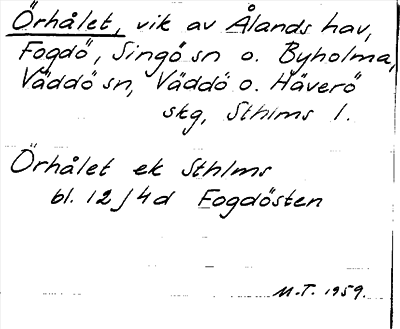 Örhålet, vik av Ålands hav,
Fogdö, Singö sn o. Byholma,
Väddö sn, Väddö o. Häverö
skg, Sthlms l.
Örhålet ek Sthlms
bl. 12 J 4d Fogdösten
M.T. 1959.